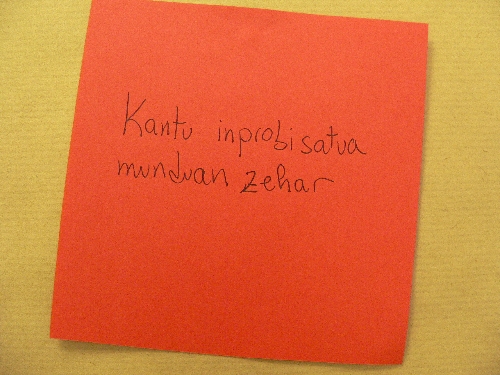 Kantu inprobisatua
munduan zehar